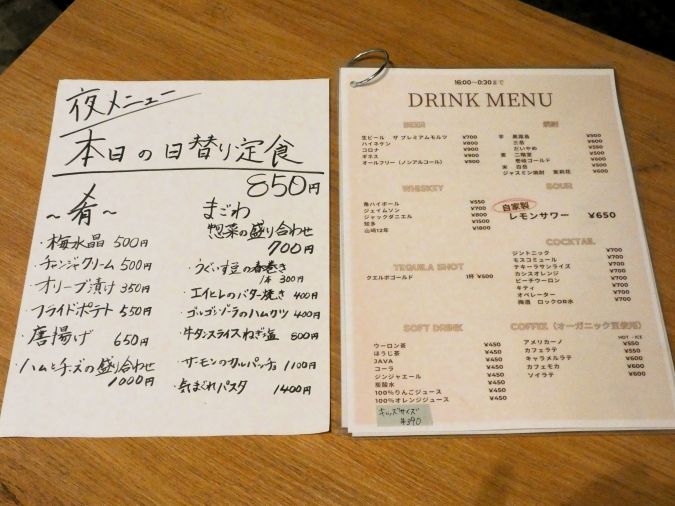 夜メニュー
本日の日替り定食
850円
～肴～
・梅水晶 500円
・チャンジャクリーム 500円
・オリーブ漬け 350円
・フライドポテト 550円
・唐揚げ 650円
・ハムとチーズの盛り合わせ
1000円
まごわ
惣菜の盛り合わせ
700円
・うぐいす豆の春巻き
1本 300円
・エイヒレのバター焼き 400円
・ゴルゴンゾーラのハムカツ 400円
・牛タンスライスねぎ塩 800円
・サーモンのカルパッチョ 1100円
・気まぐれパスタ 1400円
16:00～0:30まで
DRINK MENU
BEER
生ビール ザ プレミアムモルツ ¥700
ハイネケン ¥800
コロナ ¥900
ギネス ¥900
オールフリー（ノンアルコール） ¥800
WHISKEY
角ハイボール ¥550
ジェイムソン ¥700
ジャックダニエル ¥800
知多 ¥1500
山崎12年 ¥1800
TEQUILA SHOT
クエルボゴールド 1杯 ¥500
SOFT DRINK
ウーロン茶 ¥450
ほうじ茶 ¥450
JAVA ¥450
コーラ ¥450
ジンジャエール ¥450
炭酸水 ¥450
100%りんごジュース ¥450
100%オレンジジュース ¥450
キッズサイズ
¥390
焼酎
芋 黒霧島 ¥500
三岳 ¥600
だいやめ ¥550
麦 二階堂 ¥500
壱岐ゴールド ¥600
米 白岳 ¥500
ジャスミン焼酎 茉莉花 ¥600
SOUR
自家製
レモンサワー ¥650
COCKTAIL
ジントニック ¥700
モスコミュール ¥700
テキーラサンライズ ¥700
カシスオレンジ ¥700
ピーチウーロン ¥700
キティ ¥700
オペレーター ¥700
梅酒 ロックOR水 ¥700
COFFEE（オーガニック豆使用）
HOT・ICE
アメリカーノ ¥550
カフェラテ ¥550
キャラメルラテ ¥600
カフェモカ ¥600
ソイラテ ¥600